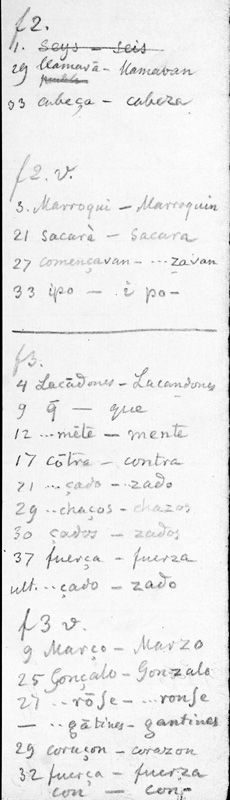 f2.
1. Seys – seis
29 llamavã – llamavan
33 cabeça – cabeza
f2. v.
3. Marroqui – Marroquin
21 Sacarà – Sacara
27 començavan – ...zavan
33 ipo — i po–
f3.
4 Lacãdones – Lacandones
9 q̃ — que
12 ...mẽte – mente
17 cõtra – contra
21 ...çado – zado
29 ..chaços – chazos
30 çados – zados
37 fuerça – fuerza
ult. ..çado – zado
f3 v.
9 Março – Marzo
25 Gonçalo – Gonzalo
27 ..rõse – ...ronse
— ..gãtines – gantines
29 coruçon – corazon
32 fuerça – fuerza
con – con;–